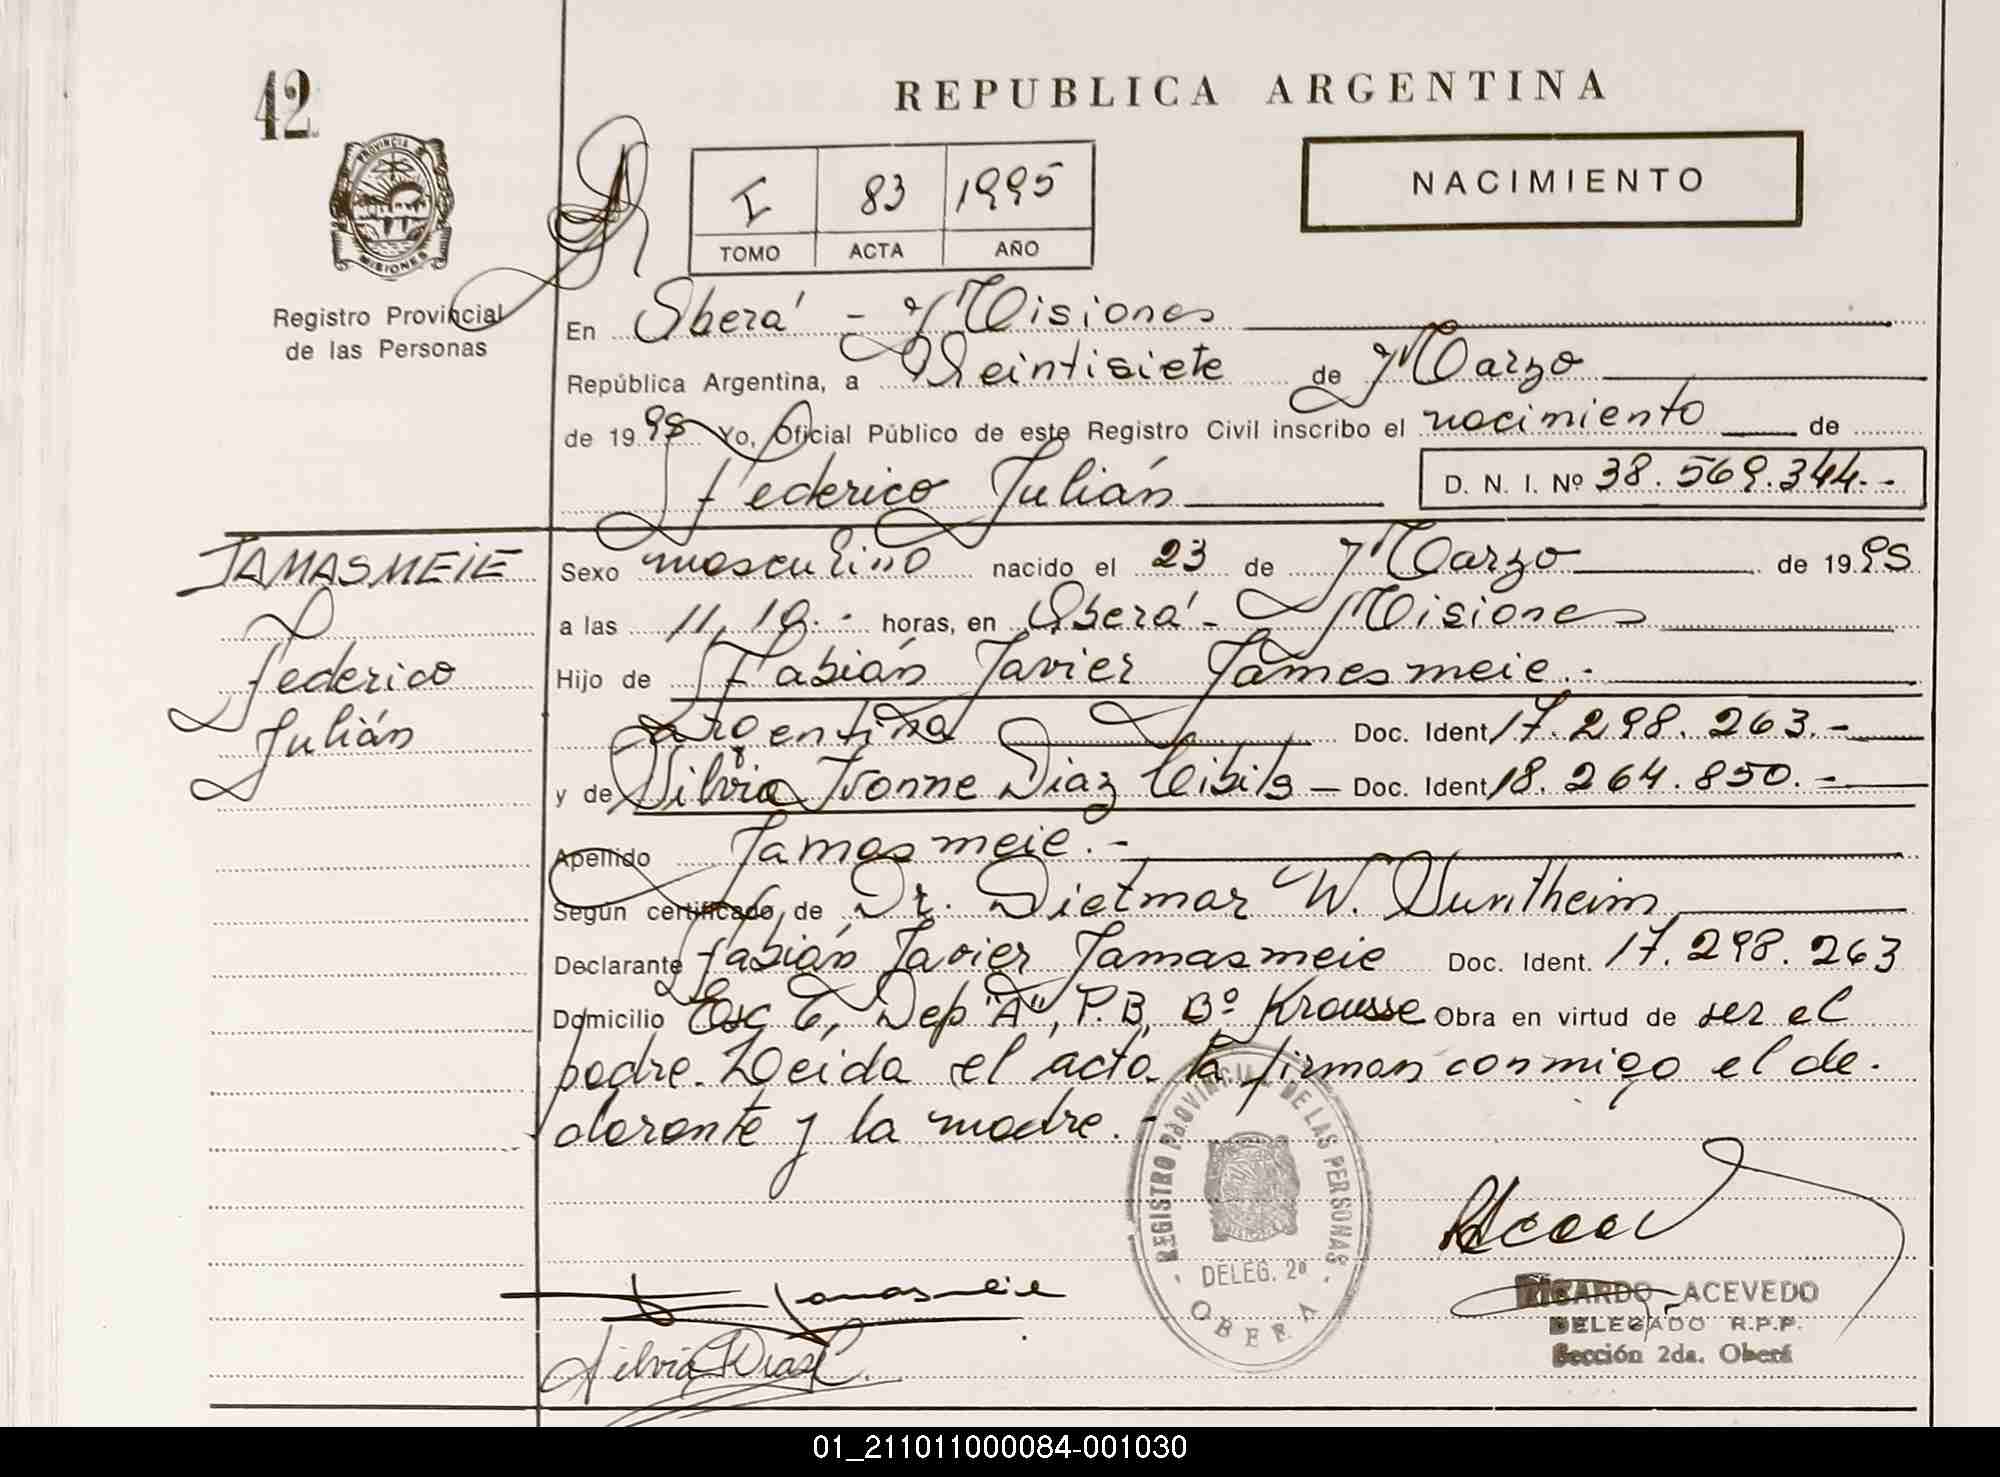 42
REPUBLICA ARGENTINA
PROVINCIA DE
MISIONES
I 83 1995
TOMO ACTA AÑO
NACIMIENTO
Registro Provincial
de las Personas
En Oberá - Misiones
República Argentina, a Veintisiete de Marzo
de 1995 Yo, Oficial Público de este Registro Civil inscribo el nacimiento de
Federico Julián D. N. I. Nº 38.569.344.-
TAMASMEIE
Federico
Julián
Sexo masculino nacido el 23 de Marzo de 1995
a las 11,10.- horas, en Oberá - Misiones
Hijo de Fabián Javier Tamasmeie.-
argentina Doc. Ident 17.298.263.-
y de Silvia Ivonne Diaz Cibils - Doc. Ident 18.264.850.-
Apellido Tamasmeie.-
Según certificado de Dr. Dietmar W. Suntheim
Declarante Fabián Javier Tamasmeie Doc. Ident. 17.298.263
Domicilio Esc 6, Dep "A", P.B, Bº Krausse Obra en virtud de ser el
padre. Leida el acta la firman conmigo el de-
clarante y la madre.-
REGISTRO PROVINCIAL DE LAS PERSONAS
DELEG. 2ª
OBERA
Tamasmeie
Silvia Diaz C.
RICARDO ACEVEDO
DELEGADO R.P.P.
Sección 2da. Oberá
01_211011000084-001030